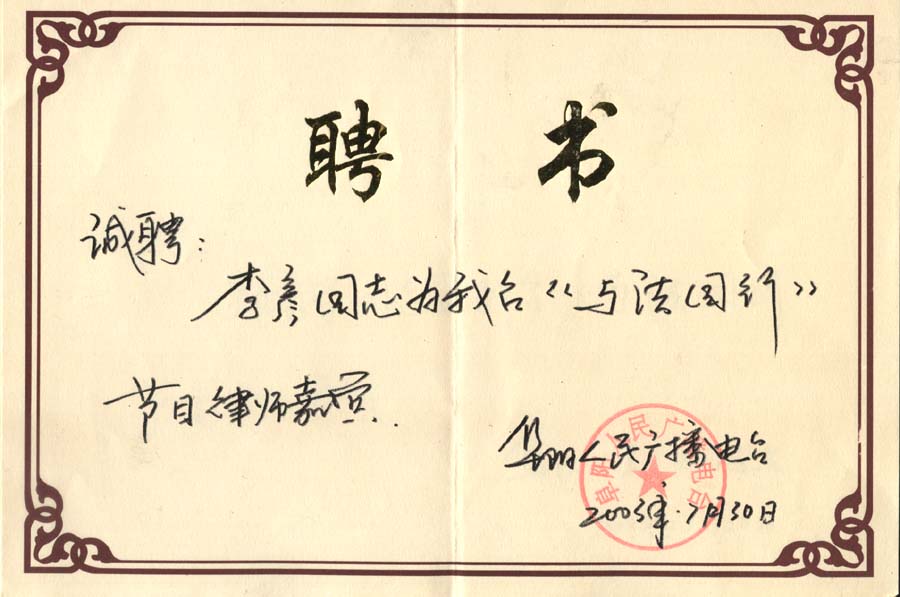 聘书
诚聘:
李彦同志为我台《与法同行》
节目律师嘉宾.
阜阳人民广播电台
阜阳人民广播电台
2003年.7月30日